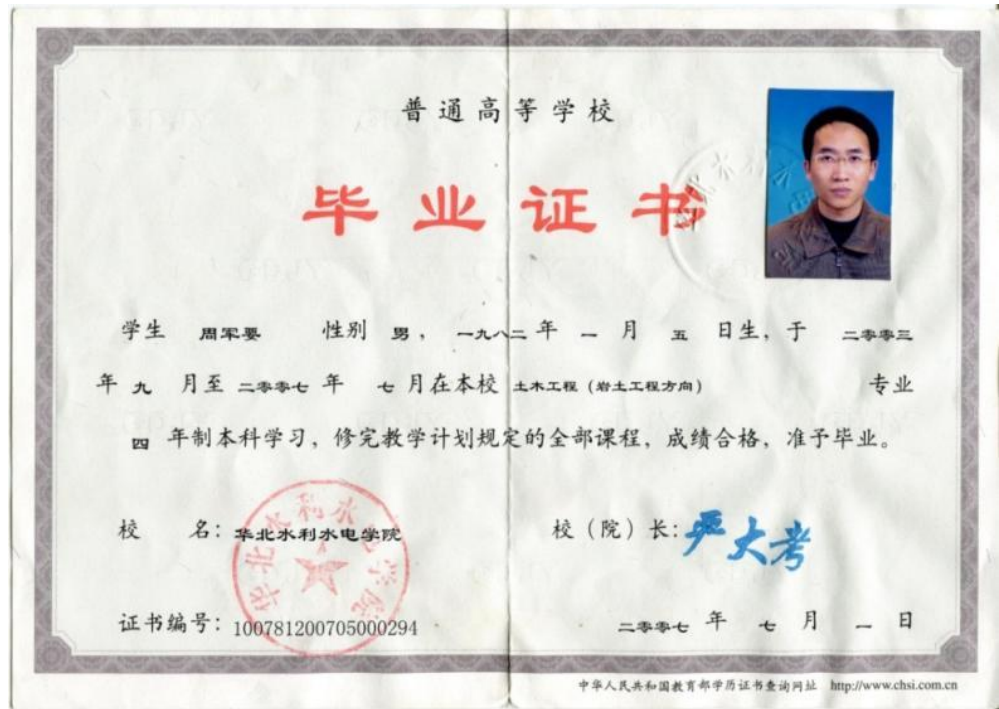 普通高等学校
毕业证书
学生 周军要 性别 男，一九八二年 一 月 五 日生，于 二零零三
年 九 月至 二零零七 年 七 月在本校 土木工程（岩土工程方向） 专业
四 年制本科学习，修完教学计划规定的全部课程，成绩合格，准予毕业。
校 名：华北水利水电学院
校（院）长：严大考
华北水利水电学院
证书编号：100781200705000294
二零零七 年 七 月 一 日
中华人民共和国教育部学历证书查询网址 http://www.chsi.com.cn